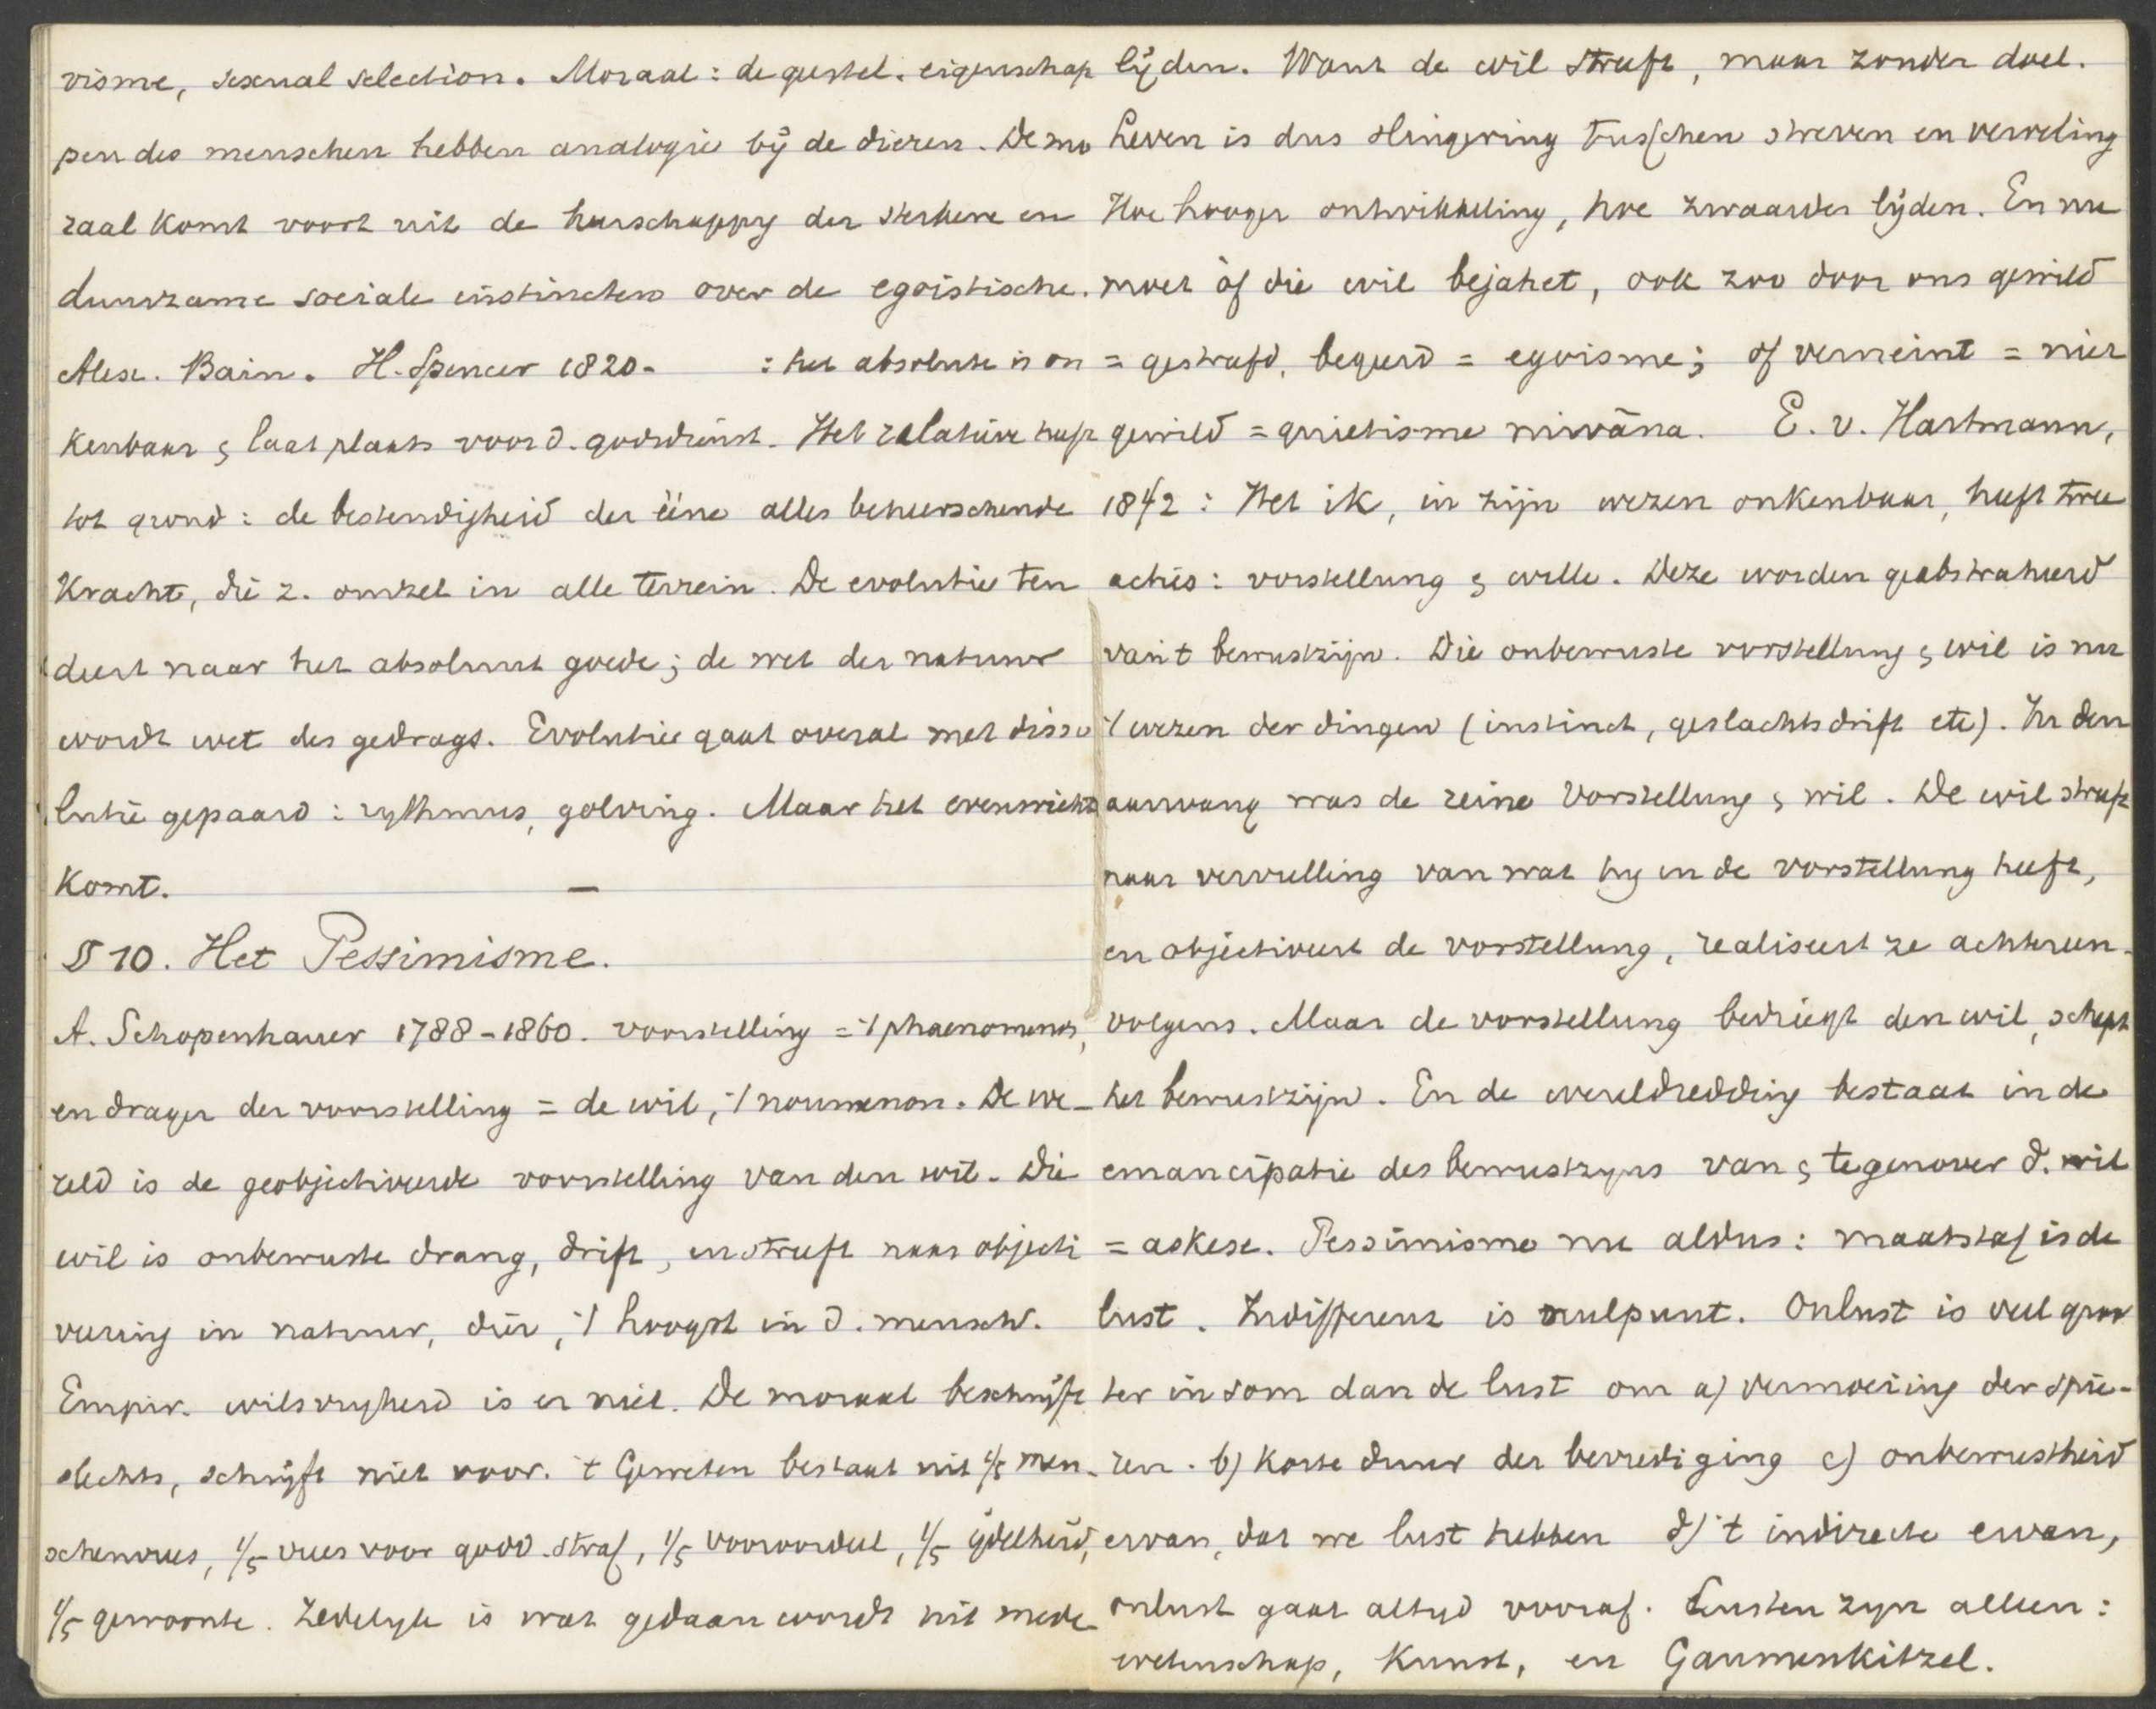 visme, sexual selection. Moraal: de geestel. eigenschap
pen des menschen hebben analogie bij de dieren. De mo
raal komt voort uit de heerschappy der sterkere en
duurzame sociale instincten over de egoistische.
Alex. Bain. H. Spencer 1820- : het absolute is on
kenbaar & laat plaats voor d. godsdienst. Het relatieve heeft
tot grond: de bestendigheid der ééne alles beheerschende
Kracht, die z. omzet in alle terrein. De evolutie ten
deert naar het absoluut goede; de wet der natuur
wordt wet des gedrags. Evolutie gaat overal met disso
lutie gepaard: rythmus, golving. Maar het evenwicht
komt. —
§ 10. Het Pessimisme.
A. Schopenhauer 1788-1860. voorstelling = 't phaenomenon,
en drager der voorstelling = de wil, 't noumenon. De we-
reld is de geobjectiveerde voorstelling van den wil. Die
wil is onbewuste drang, drift, en streeft naar objecti
veering in natuur, dier, 't hoogst in d. mensch.
Empir. wilsvryheid is er niet. De moraal beschrijft
slechts, schrijft niet voor. 't Geweten bestaat uit 1/5 men-
schenvrees, 1/5 vrees voor godd. straf, 1/5 vooroordeel, 1/5 ijdelheid,
1/5 gewoonte. Zedelyk is wat gedaan wordt uit mede-
lijden. Want de wil streeft, maar zonder doel.
Leven is dus slingering tusschen streven en verveling
Hoe hooger ontwikkeling, hoe zwaarder lijden. En nu
moet òf die wil bejahet, ook zoo door ons gewild
= gestraft, begeerd = egoisme; of verneint = niet
gewild = quietisme nirvâna. E. v. Hartmann,
1842: Het ik, in zijn wezen onkenbaar, heeft twee
acties: vorstellung & wille. Deze worden geabstraheerd
van 't bewustzijn. Die onbewuste vorstellung & wil is nu
't wezen der dingen (instinct, geslachtsdrift etc). In den
aanvang was de reine Vorstellung & wil. De wil streeft
naar vervulling van wat hy in de vorstellung heeft,
en objectiveert de vorstellung, realiseert ze achtereen-
volgens. Maar de vorstellung bedriegt den wil, schept
het bewustzijn. En de wereldredding bestaat in de
emancipatie des bewustzyns van & tegenover d. wil
= askese. Pessimisme nu aldus: maatstaf is de
lust. Indifferenz is nulpunt. Onlust is veel groo
ter in som dan de lust om a) vermoeiing der spie-
ren. b) Korte duur der bevrediging c) onbewustheid
ervan, dat we lust hebben d) 't indirecte ervan,
onlust gaat altyd vooraf. Lusten zyn alleen:
wetenschap, Kunst, en Gaumenkitzel.